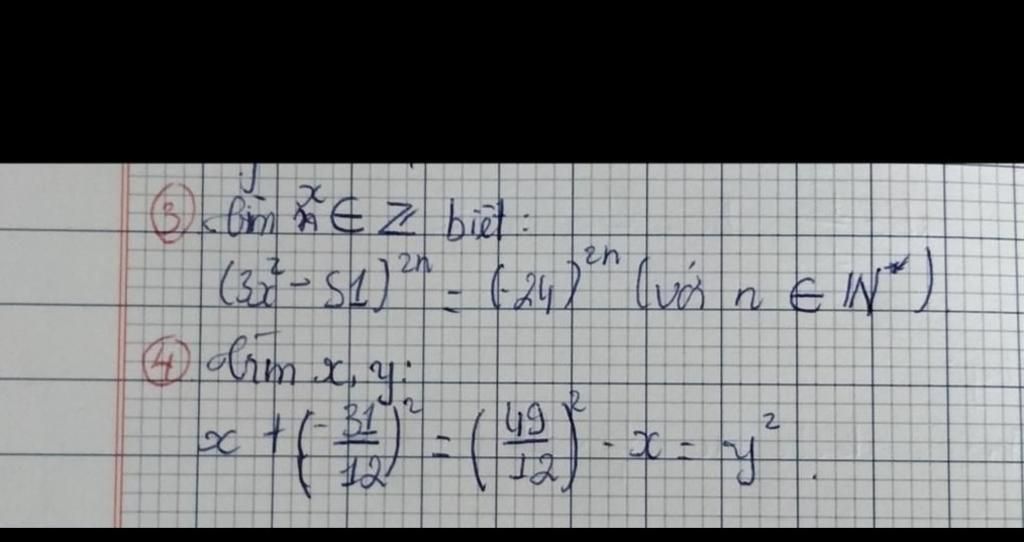 ③ Tìm x ∈ Z biết:
(3x² - 51)²ⁿ = (-24)²ⁿ (với n ∈ N*)
④ Tìm x, y:
x + (-31/12)² = (49/12)² - x = y².